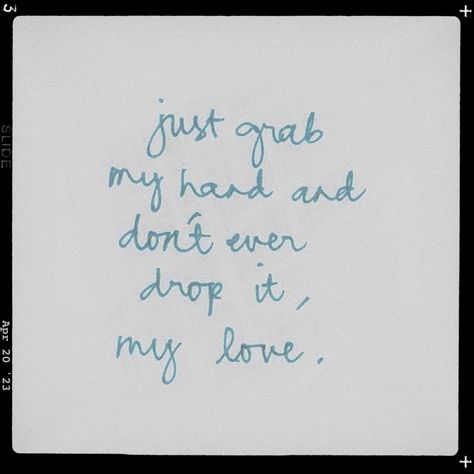 3
SLIDE
Apr 20 '23
just grab
my hand and
don't ever
drop it,
my love.